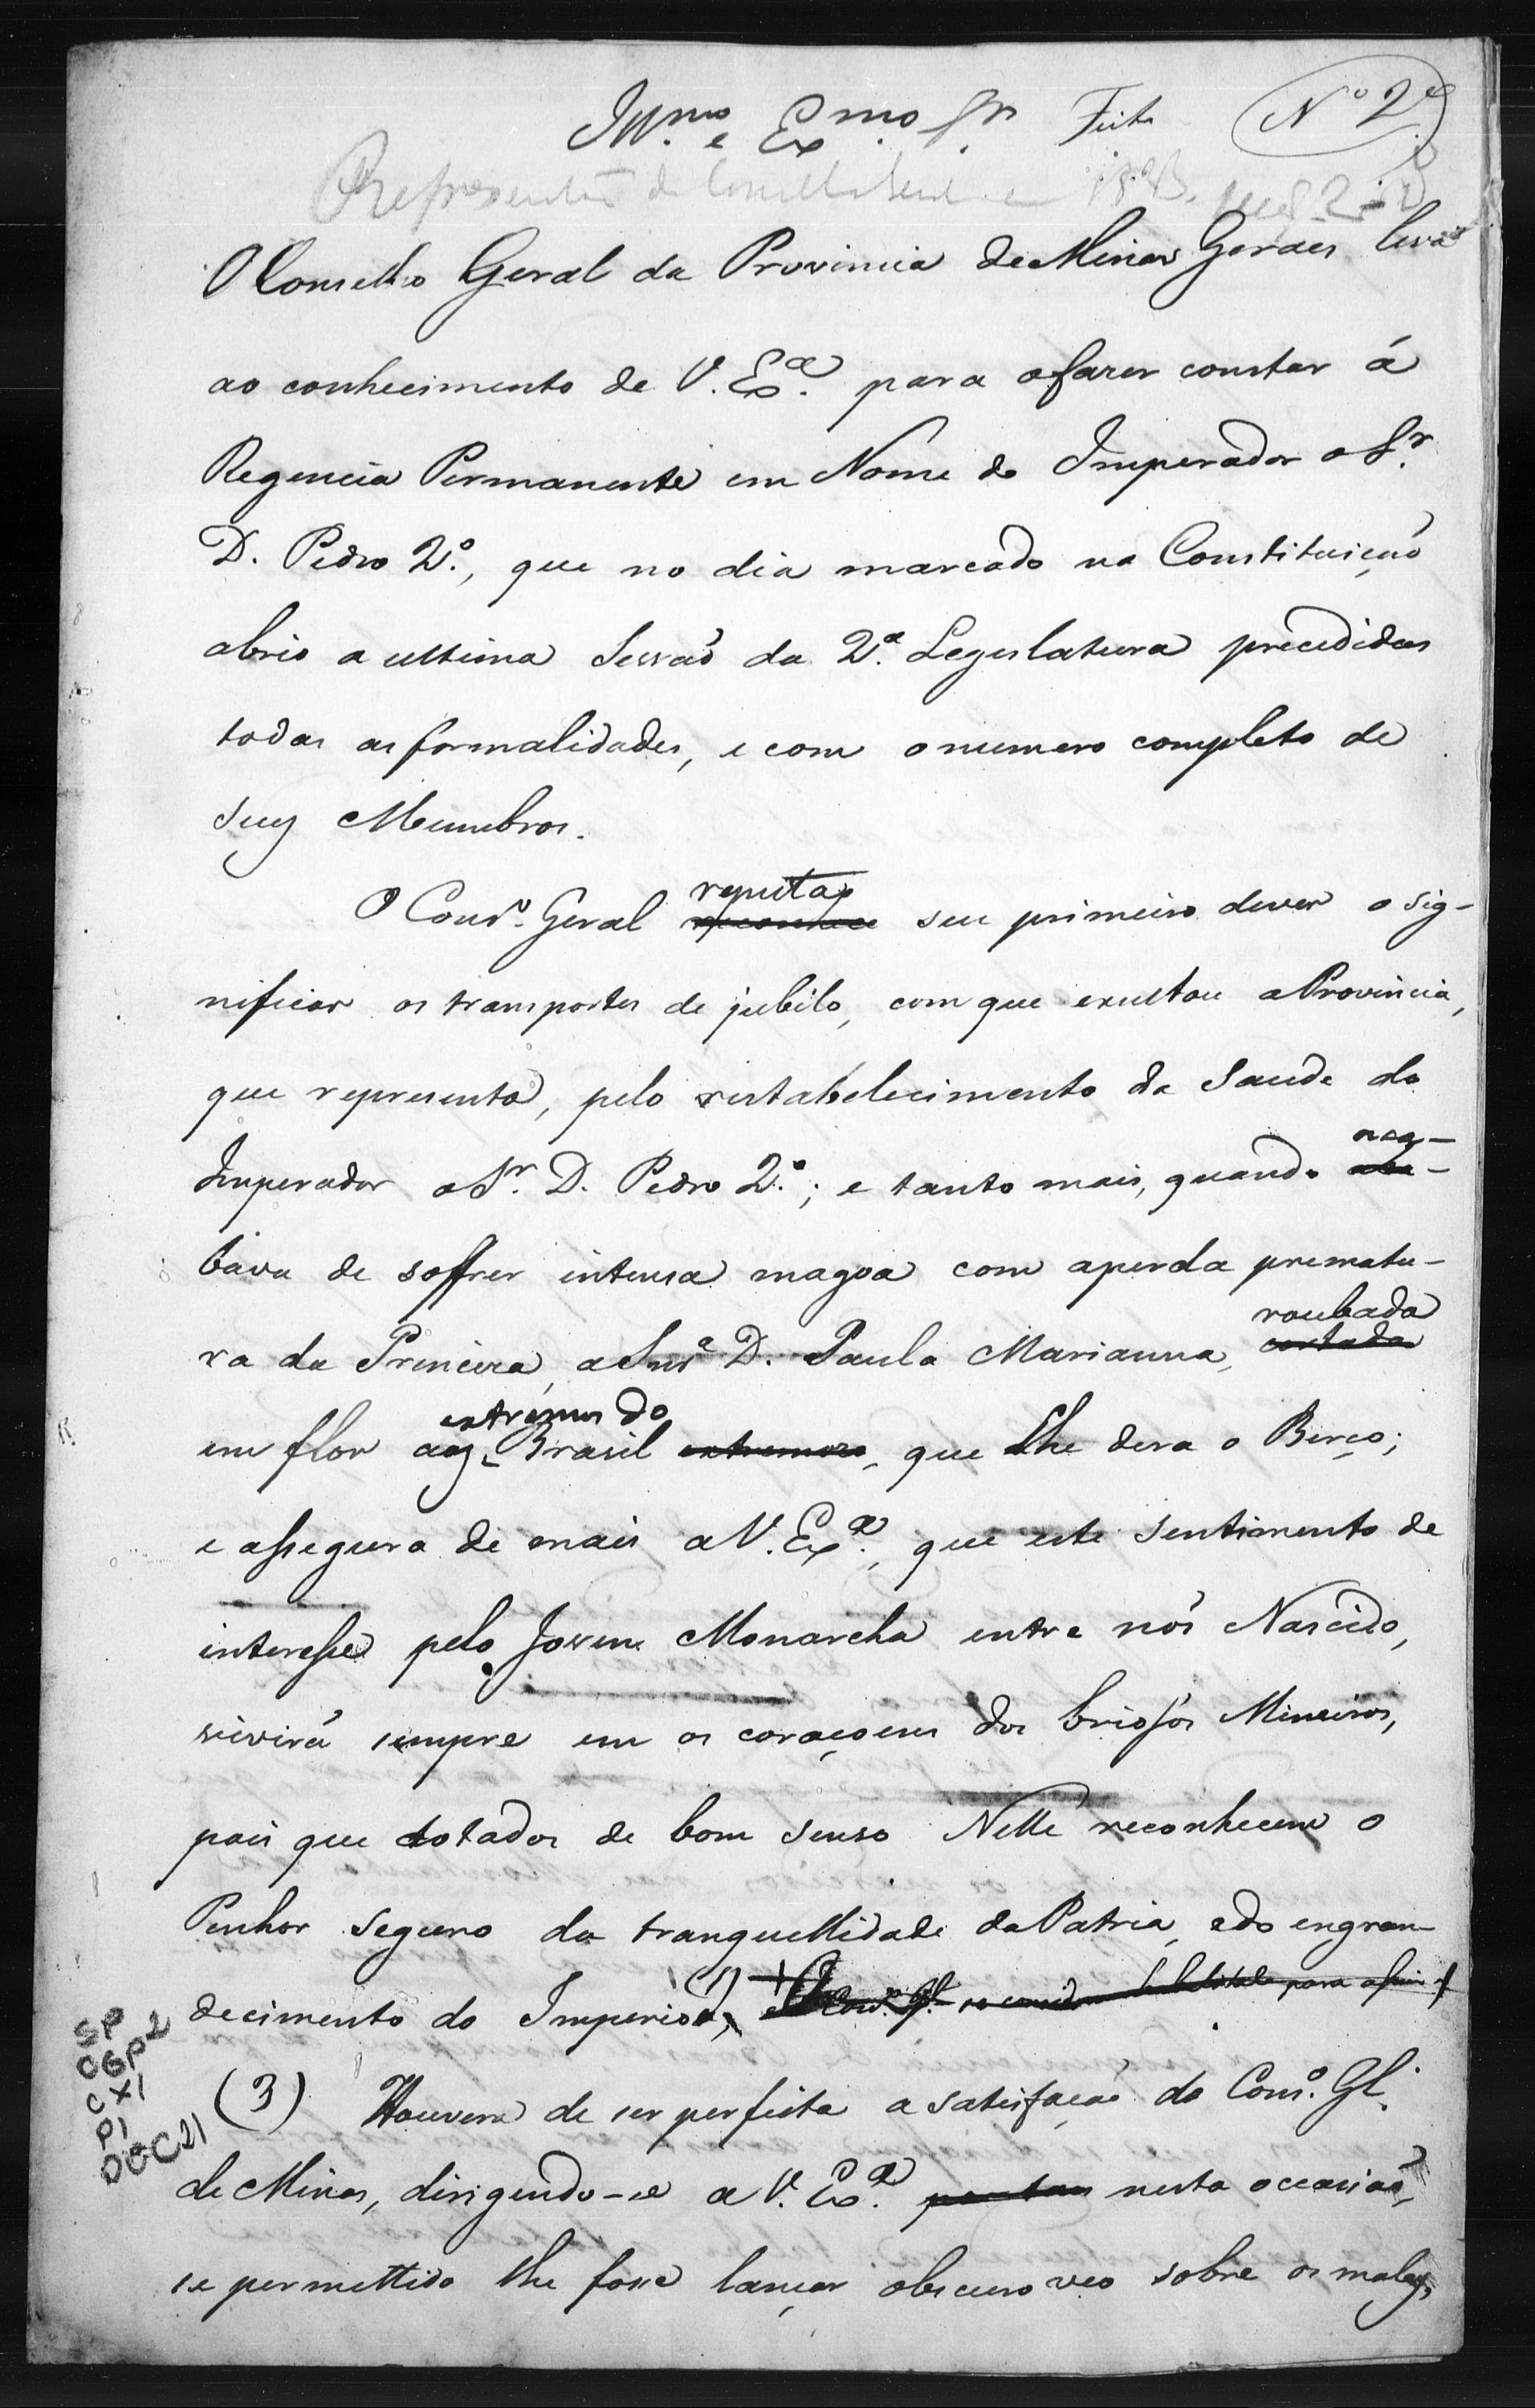 Illmo. e Exmo. Sr. Feita Nº 2º
Represent
O Conselho Geral da Provincia de Minas Geraes leva
ao conhecimento de V. Exª. para o fazer constar á
Regencia Permanente em Nome do Imperador o Sr.
D. Pedro 2º., que no dia marcado na Constituiçaõ
abrio a ultima Sessaõ da 2ª. Legislatura precedidas
todas as formalidades, e com o numero completo de
seus Membros.
reputa
O Consº. Geral reconhece seu primeiro dever o sig-
nificar os transportes de jubilo, com que exultou a Provincia,
que representa, pelo restabelecimento da Saude do
aca-
Imperador o Sr. D. Pedro 2º.; e tanto mais, quando aca-
bava de soffrer intensa magoa com a perda prematu-
roubada
ra da Princeza, a Snrª D. Paula Marianna, cortada
extremos do
em flor aos Brasil extremoso, que Lhe dera o Berço;
e assegura de mais a V. Exª., que este sentimento de
interesse pelo Joven Monarcha entre nós Nascido,
vivirá sempre em os coraçoens dos briosos Mineiros,
pois que dotados de bom senso Nelle reconhecem o
Penhor seguro da tranquellidade da Patria, e do engran-
decimento do Imperio. (1) + O Consº. Gl. se considera habilitado para assim
(3) Houvera de ser perfeita a satisfaçaõ do Consº. Gl.
de Minas, dirigendo-se a V. Exª. nesta occasiaõ,
se permettido lhe fosse lançar obscuro veo sobre os males,
SP
CGP2
CX1
P1
DOC21